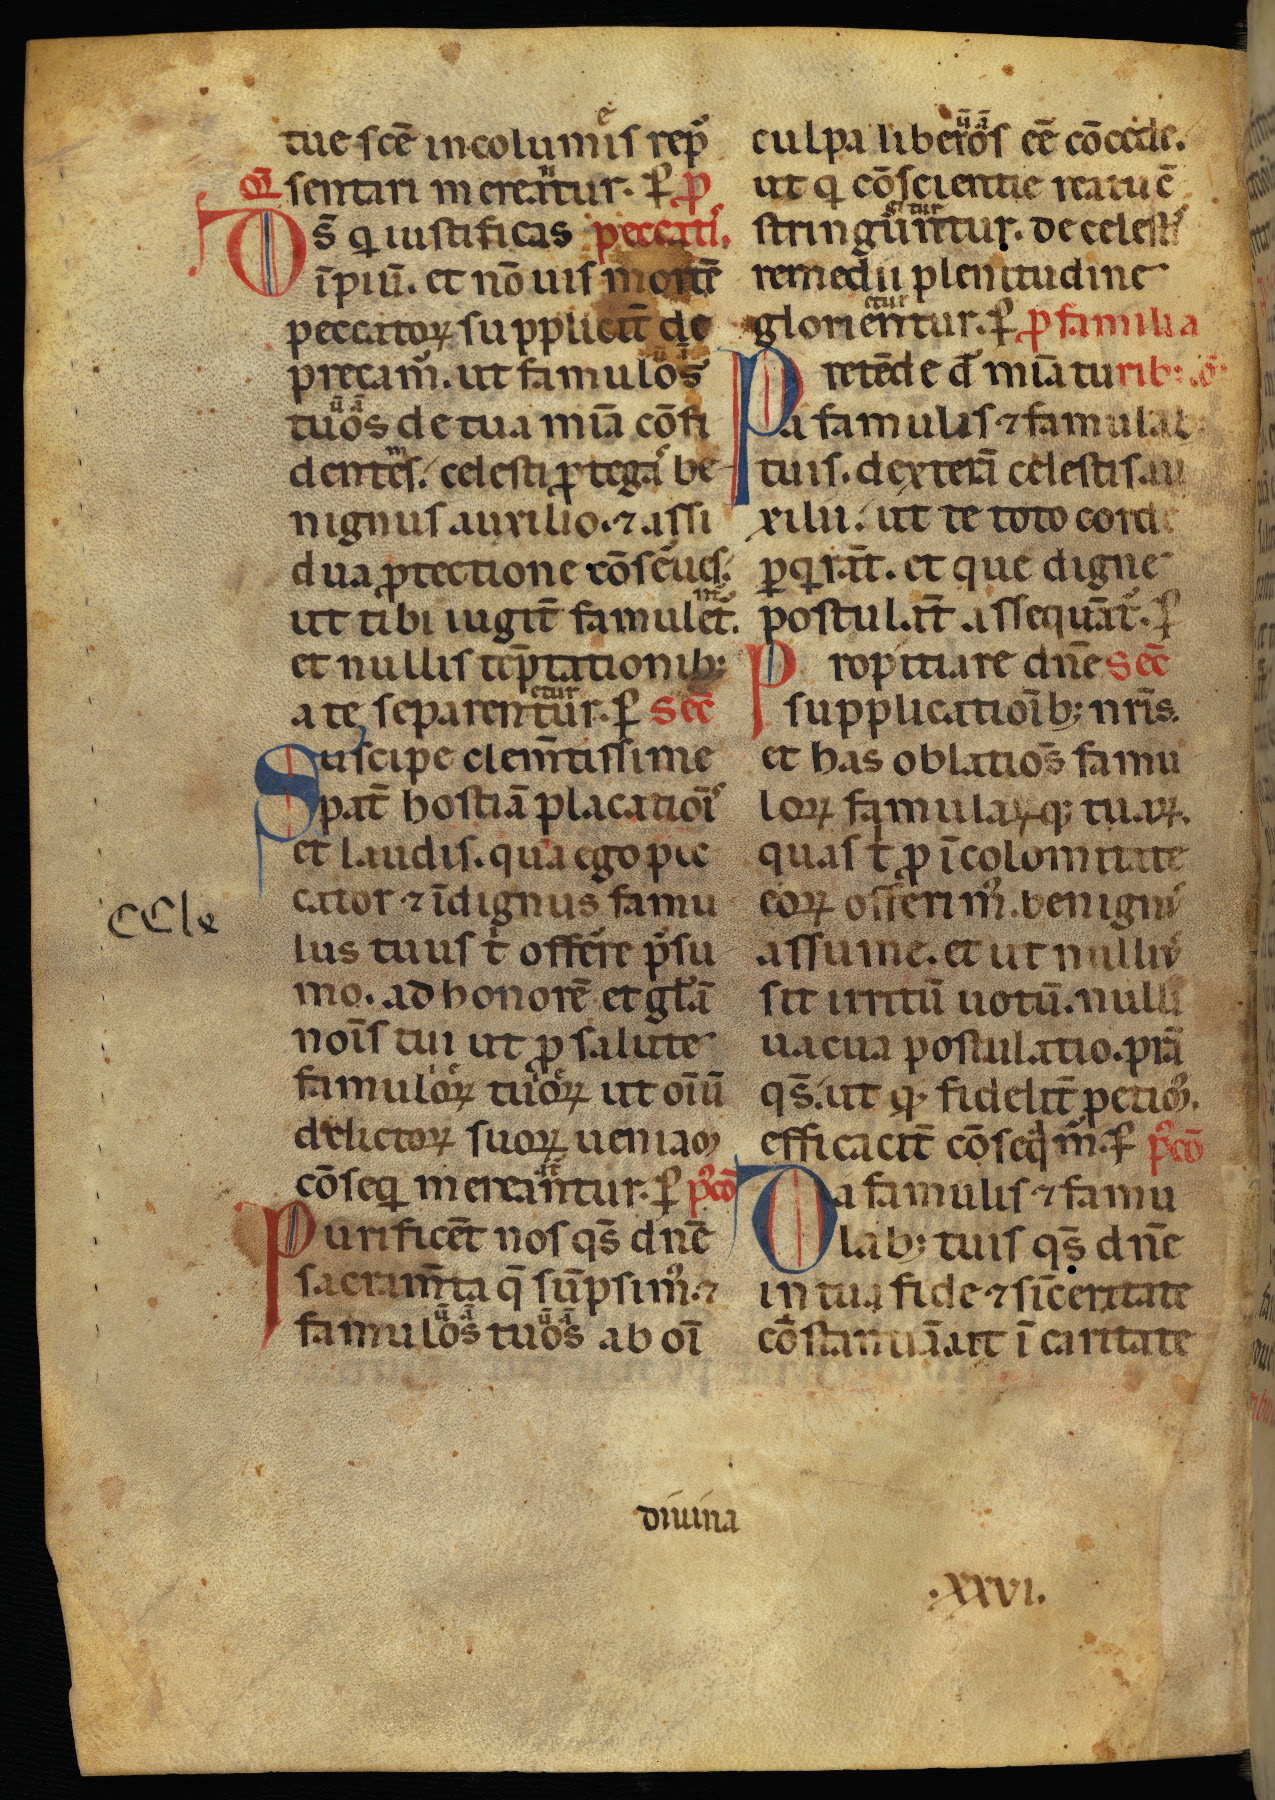 tue scē incolumis rep̄
sentari mereatur. ꝑ ꝓ
D s̄ qi iustificas peccatis.
īpiū. et nō uis mortē
peccatoꝝ suppliciт̄ de
precam̄. ut famulos
tuos de tua mīa cōfi
dentes. celesti ꝓtega be
nignus auxilio. ⁊ assi
dua ꝓtectione cōserues.
ut tibi iugit̄ famulet.
et nullis tēptationib;
a te separentur. ꝑ Sec̄
Suscipe clemētissime
pat̄ hostiā placatiōis
et laudis. qua ego pec
cator ⁊ īdignus famu
lus tuus t offere p̄su
mo. ad honorē et gl̄am
nōis tui ut ꝓ salute
famuloꝝ tuoꝝ ut oīū
delictoꝝ suoꝝ ueniaꝫ
cōseqi mereantur. ꝑ p̄9cō
Purificēt nos qs̄ dnē
sacram̄ta q̄ sūpsim9. ⁊
famulos tuos ab oī
culpa liberos eē cōcede.
ut qi cōscientie reatu cō
stringuntur. de celestis
remedii plenitudine
glorientur. ꝑ ꝓ familiarib;. ō
Pretēde d̄ mīa tu
a famulis ⁊ famulab;
tuis. dexterā celestis au
xilii. ut te toto corde
ꝑqirāt. et que digne
postulāt assequāt̄. ꝑ
Propitiare dnē Sec̄
supplicatiōib; nr̄is.
et has oblatiōs famu
loꝝ famulaꝝq; tuaꝝ.
quas t ꝓ īcolomitate
eoꝝ offerim9. benignus
assume. et ut nullius
sit irritū uotū. nulli
uacua postulatio. p̄sta
qs̄. ut q fidelit̄ petim9.
efficacit̄ cōseqam̄. ꝑ p̄9cō
Da famulis ⁊ famu
lab; tuis qs̄ dnē
in tua fide ⁊ sīceritate
cōstantiā. ut ī caritate
CCle
diuina
.XXVI.